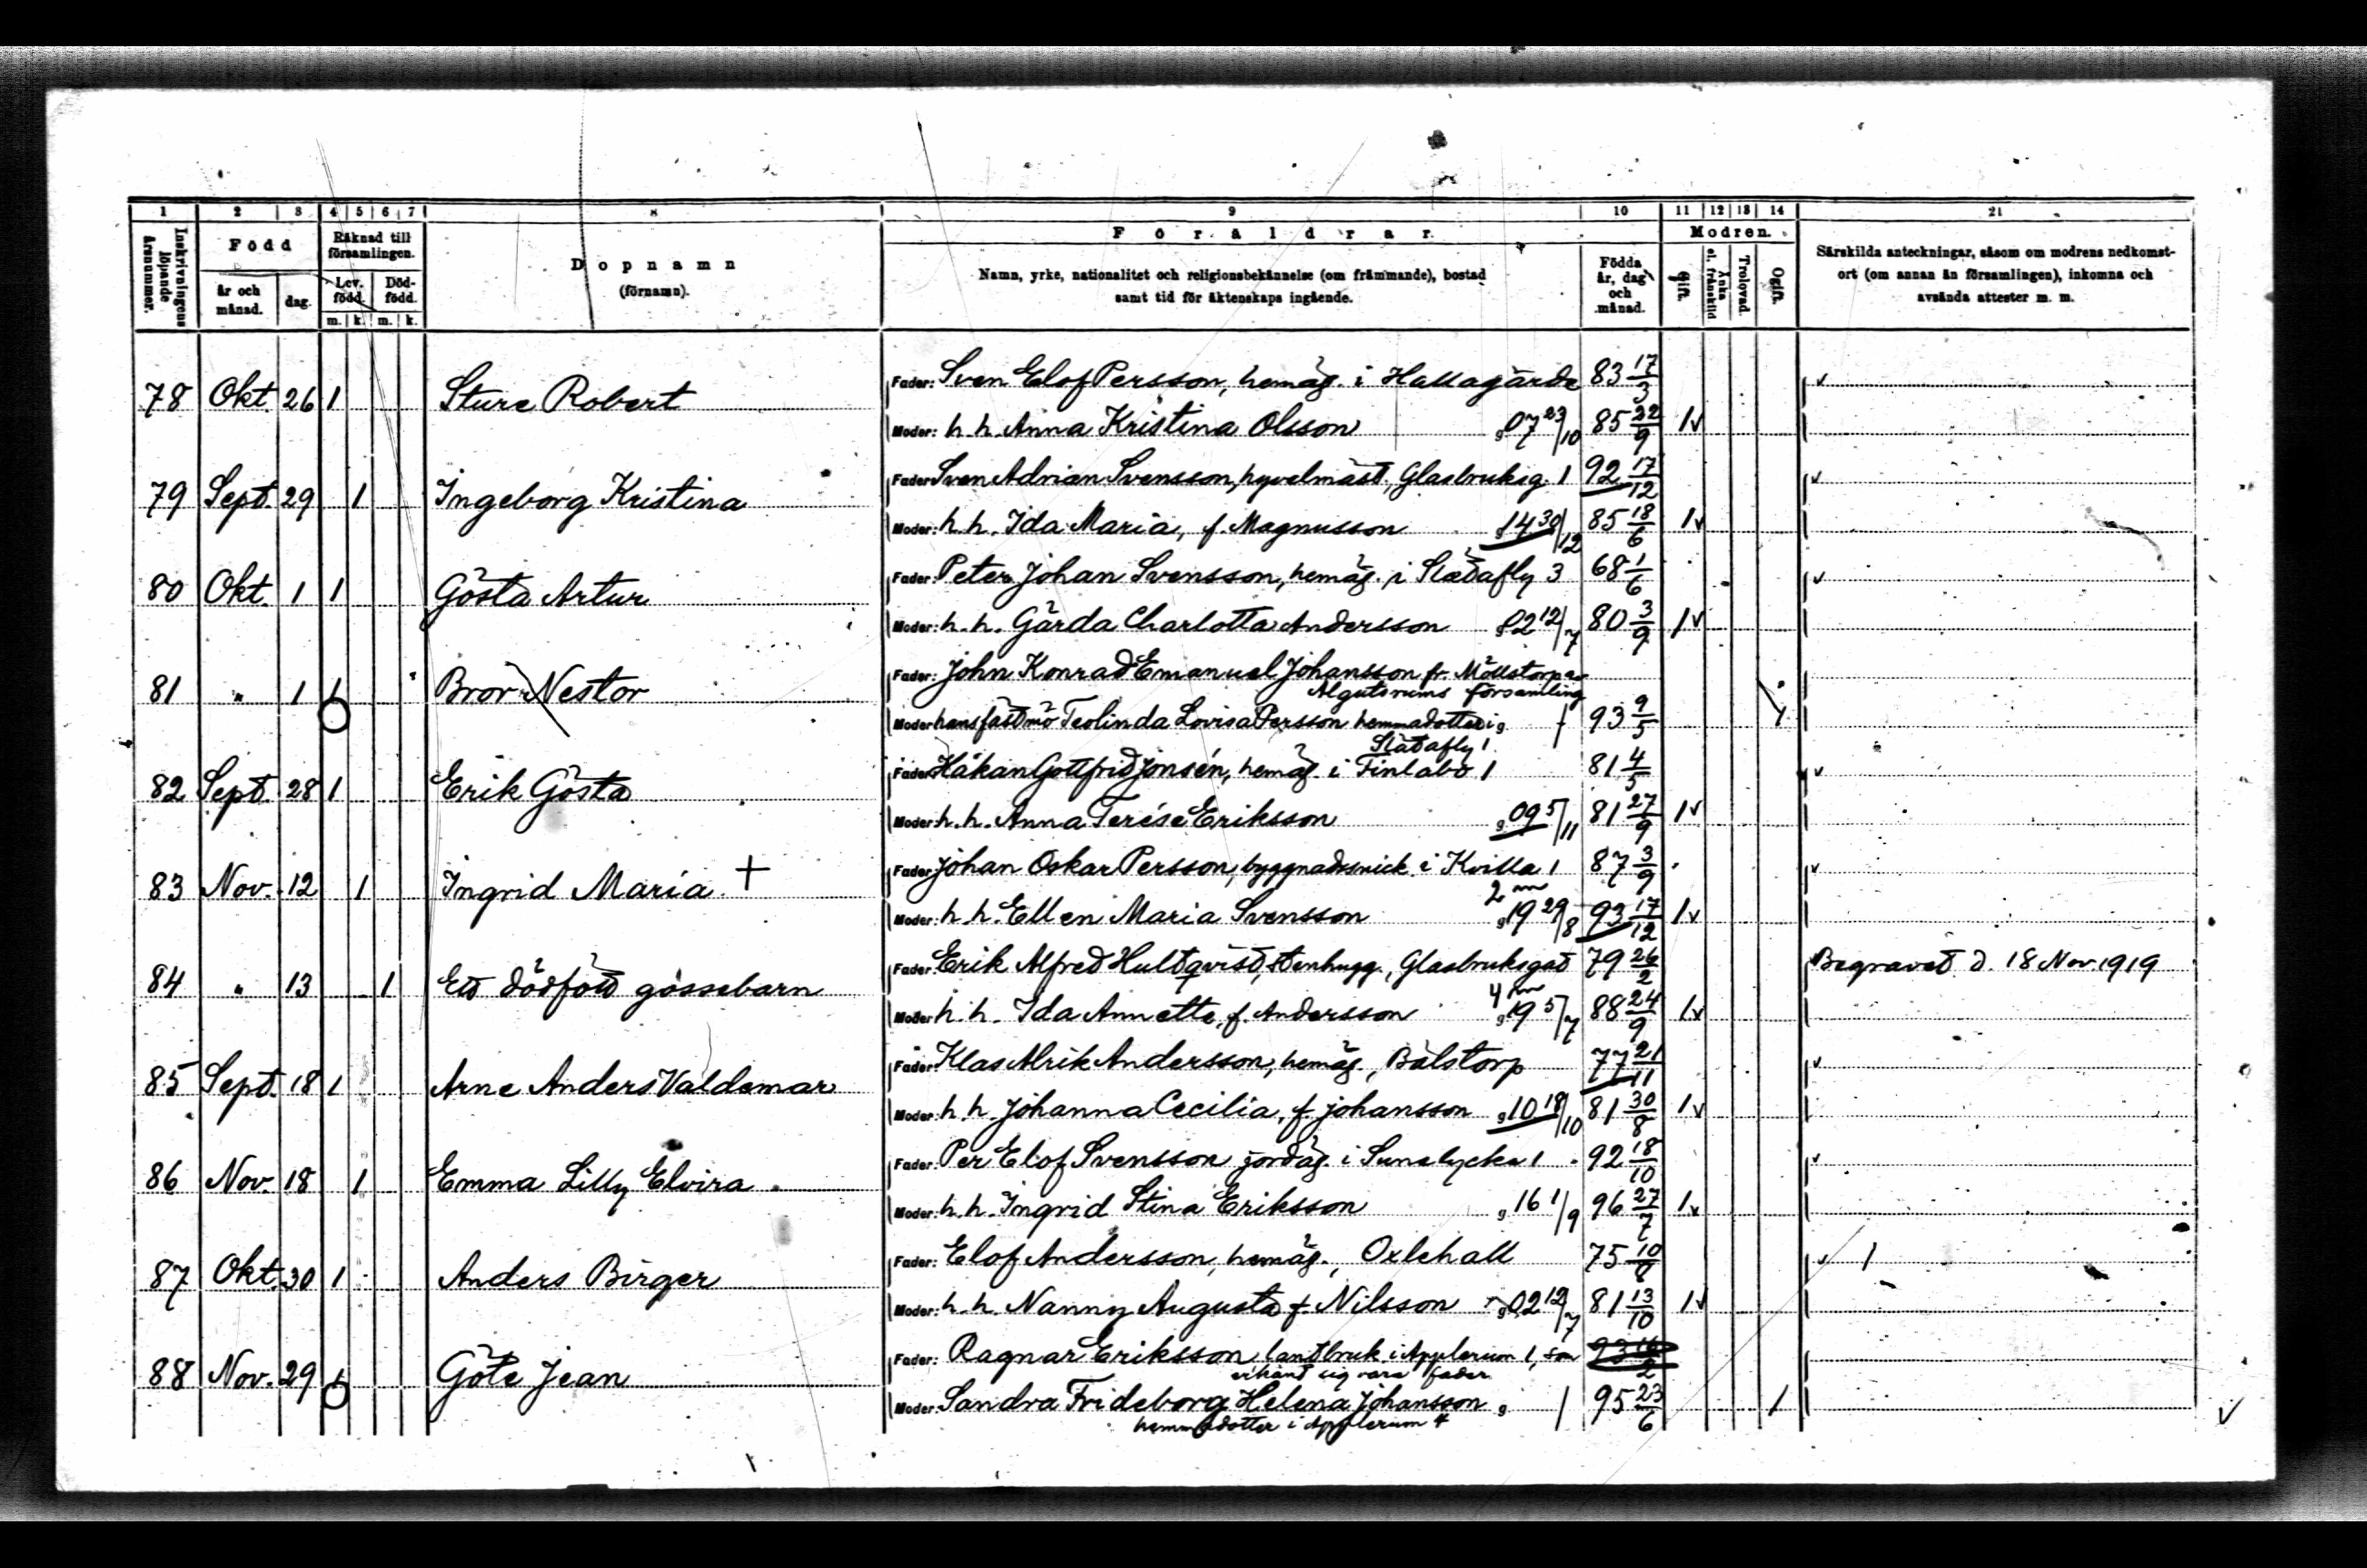 1 2 3 4 5 6 7 8 9 10 11 12 13 14 21
Inskrivningens löpande årsnummer.
Född
år och månad.
dag.
Räknad till församlingen.
Lev. född.
Död-född.
m. k. m. k.
Dopnamn
(förnamn).
Föräldrar.
Namn, yrke, nationalitet och religionsbekännelse (om främmande), bostad
samt tid för äktenskaps ingående.
Födda år, dag och månad.
Modren.
Gift.
Änka el. frånskild
Trolovad.
Ogift.
Särskilda anteckningar, såsom om modrens nedkomst-
ort (om annan än församlingen), inkomna och
avsända attester m. m.
78 Okt. 26 1 Sture Robert
Fader: Sven Elof Persson, hemäg. i Hallagärde 83 17/3
Moder: h. h. Anna Kristina Olsson g. 07 23/10 85 22/9 1
79 Sept. 29 1 Ingeborg Kristina
Fader: Sven Adrian Svensson, hyvelmäst., Glasbruksg. 1 92 17/12
Moder: h. h. Ida Maria, f. Magnusson g. 14 30/12 85 18/6 1
80 Okt. 1 1 Gösta Artur
Fader: Peter Johan Svensson, hemäg. i Slädafly 3 68 1/6
Moder: h. h. Gärda Charlotta Andersson g. 02 12/7 80 3/9 1
81 " 1 1 Bror Nestor
Fader: John Konrad Emanuel Johansson fr. Möllstorp av
Algutsrums församling
Moder: hans fästmö Teolinda Lovisa Persson hemmadotter i g. 93 9/5 1
Slädafly 1
82 Sept. 28 1 Erik Gösta
Fader: Håkan Gottfrid Jonsén, hemäg. i Finlabo 1 81 4/5
Moder: h. h. Anna Terése Eriksson g. 09 5/11 81 27/9 1
83 Nov. 12 1 Ingrid Maria +
Fader: Johan Oskar Persson, byggnadssnick. i Kvilla 1 87 3/9
Moder: h. h. Ellen Maria Svensson g. 19 29/8 93 17/12 1
84 " 13 1 Ett dödfött gossebarn
Fader: Erik Alfred Hultqvist, stenhugg., Glasbruksgat 79 26/2 Begravet d. 18 Nov. 1919
Moder: h. h. Ida Annette, f. Andersson g. 19 5/7 88 24/9 1
85 Sept. 18 1 Arne Anders Valdemar
Fader: Klas Alrik Andersson, hemäg., Bålstorp 77 21/11
Moder: h. h. Johanna Cecilia, f. Johansson g. 10 18/10 81 30/8 1
86 Nov. 18 1 Emma Lilly Elvira
Fader: Per Elof Svensson jordäg. i Sunslycke 1 92 18/10
Moder: h. h. Ingrid Stina Eriksson g. 16 1/9 96 27/7 1
87 Okt. 30 1 Anders Birger
Fader: Elof Andersson, hemäg., Oxlehall 75 10/8 1
Moder: h. h. Nanny Augusta f. Nilsson g. 02 12/7 81 13/10 1
88 Nov. 29 1 Göte Jean
Fader: Ragnar Eriksson, lantbruk. i Applerum 1, som
erkänt sig vara fader.
Moder: Sandra Frideborg Helena Johansson g. 95 23/6 1
hemmadotter i Applerum 4